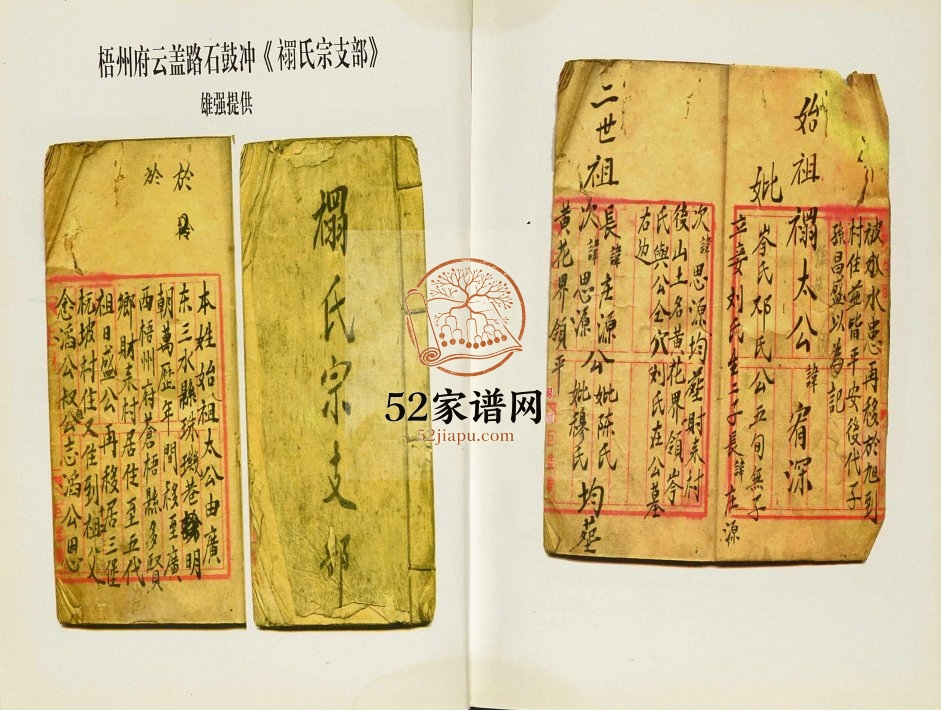 梧州府云盖路石鼓冲《禤氏宗支部》
雄强提供
於
於
本姓始祖太公由廣
东三水縣珠璣巷明
朝萬歷年間移至廣
西梧州府蒼梧縣多賢
鄉財來村居住至五代
祖日盛公再移居三堡
杬坡村住又住到祖父
念滔公叔公志滔公因
禤氏宗支部
被水患再移於旭到
村住並皆平安後代子
孫昌盛以為記
始祖禤太公諱宥深
妣岑氏邓氏公五旬無子
立妾刘氏生二子長諱庄源
次諱思源均葬財来村
後山土名黄花界領岑
氏與公仝穴刘氏在公墓
右边
二世祖長諱庄源公妣陈氏
次諱思源公妣穆氏均葬
黄花界領平
52家谱网
52jiapu.com